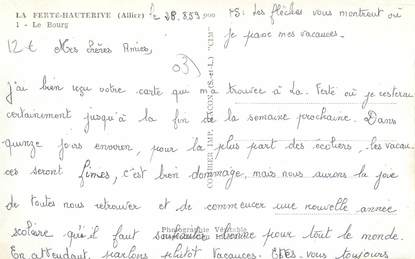 LA FERTÉ-HAUTERIVE (Allier)
1 - Le Bourg
28.859
PS: Les flèches vous montrent où
je passe mes vacances.
12 €
Mes chères Amies,
03)
COMBIER IMP. MACON (S.-et-L.) "CIM"
J'ai bien reçu votre carte qui m'a trouvée à La Ferté où je resterai
certainement jusqu'à la fin de la semaine prochaine. Dans
quinze jours environ, pour la plus part des écoliers, les vacan
ces seront finies, c'est bien dommage, mais nous aurons la joie
de toutes nous retrouver et de commencer une nouvelle année
Photographie Véritable
scolaire qu'il faut souhaiter bonne pour tout le monde.
En attendant, parlons plutôt vacances. Êtes-vous toujours